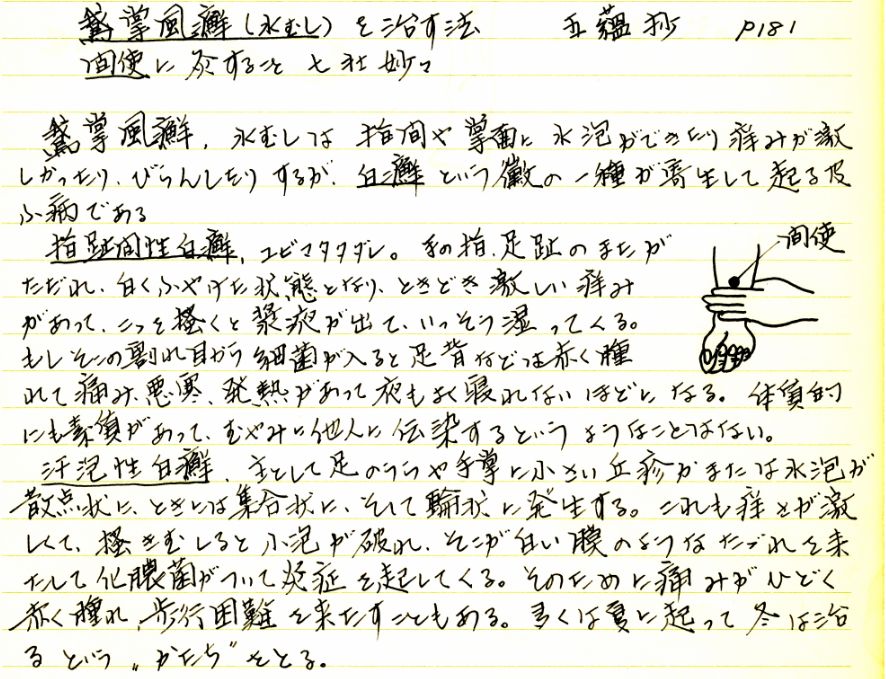 鵞掌風癬(水むし)を治す法 五蘊抄 P181
間使に灸すること七壮妙々
鵞掌風癬、水むしは 指間や掌面に水泡ができたり痒みが激
しかったり、びらんしたりするが、白癬という黴の一種が寄生して起る皮
ふ病である
指趾間性白癬、ユビマタタダレ。手の指、足趾のまたが
ただれ、白くふやけた状態となり、ときどき激しい痒み
があって、こつを掻くと漿液が出て、いっそう湿ってくる。
間使
もしそこの割れ目から細菌が入ると足背などは赤く腫
れて痛み、悪寒、発熱があって夜もよく寝れないほどになる。体質的
にも素質があって、むやみに他人に伝染するというようなことはない。
汗泡性白癬、主として足のうらや手掌に小さい丘疹かまたは水泡が
散点状に、ときには集合状に、そして輪状に発生する。これも痒みが激
しくて、掻きむしると小泡が破れ、そこが白い膜のようなただれを来
たして化膿菌がついて炎症を起してくる。そのために痛みがひどく
赤く腫れ、歩行困難を来たすこともある。多くは夏に起って冬は治
るという"かたち"をとる。